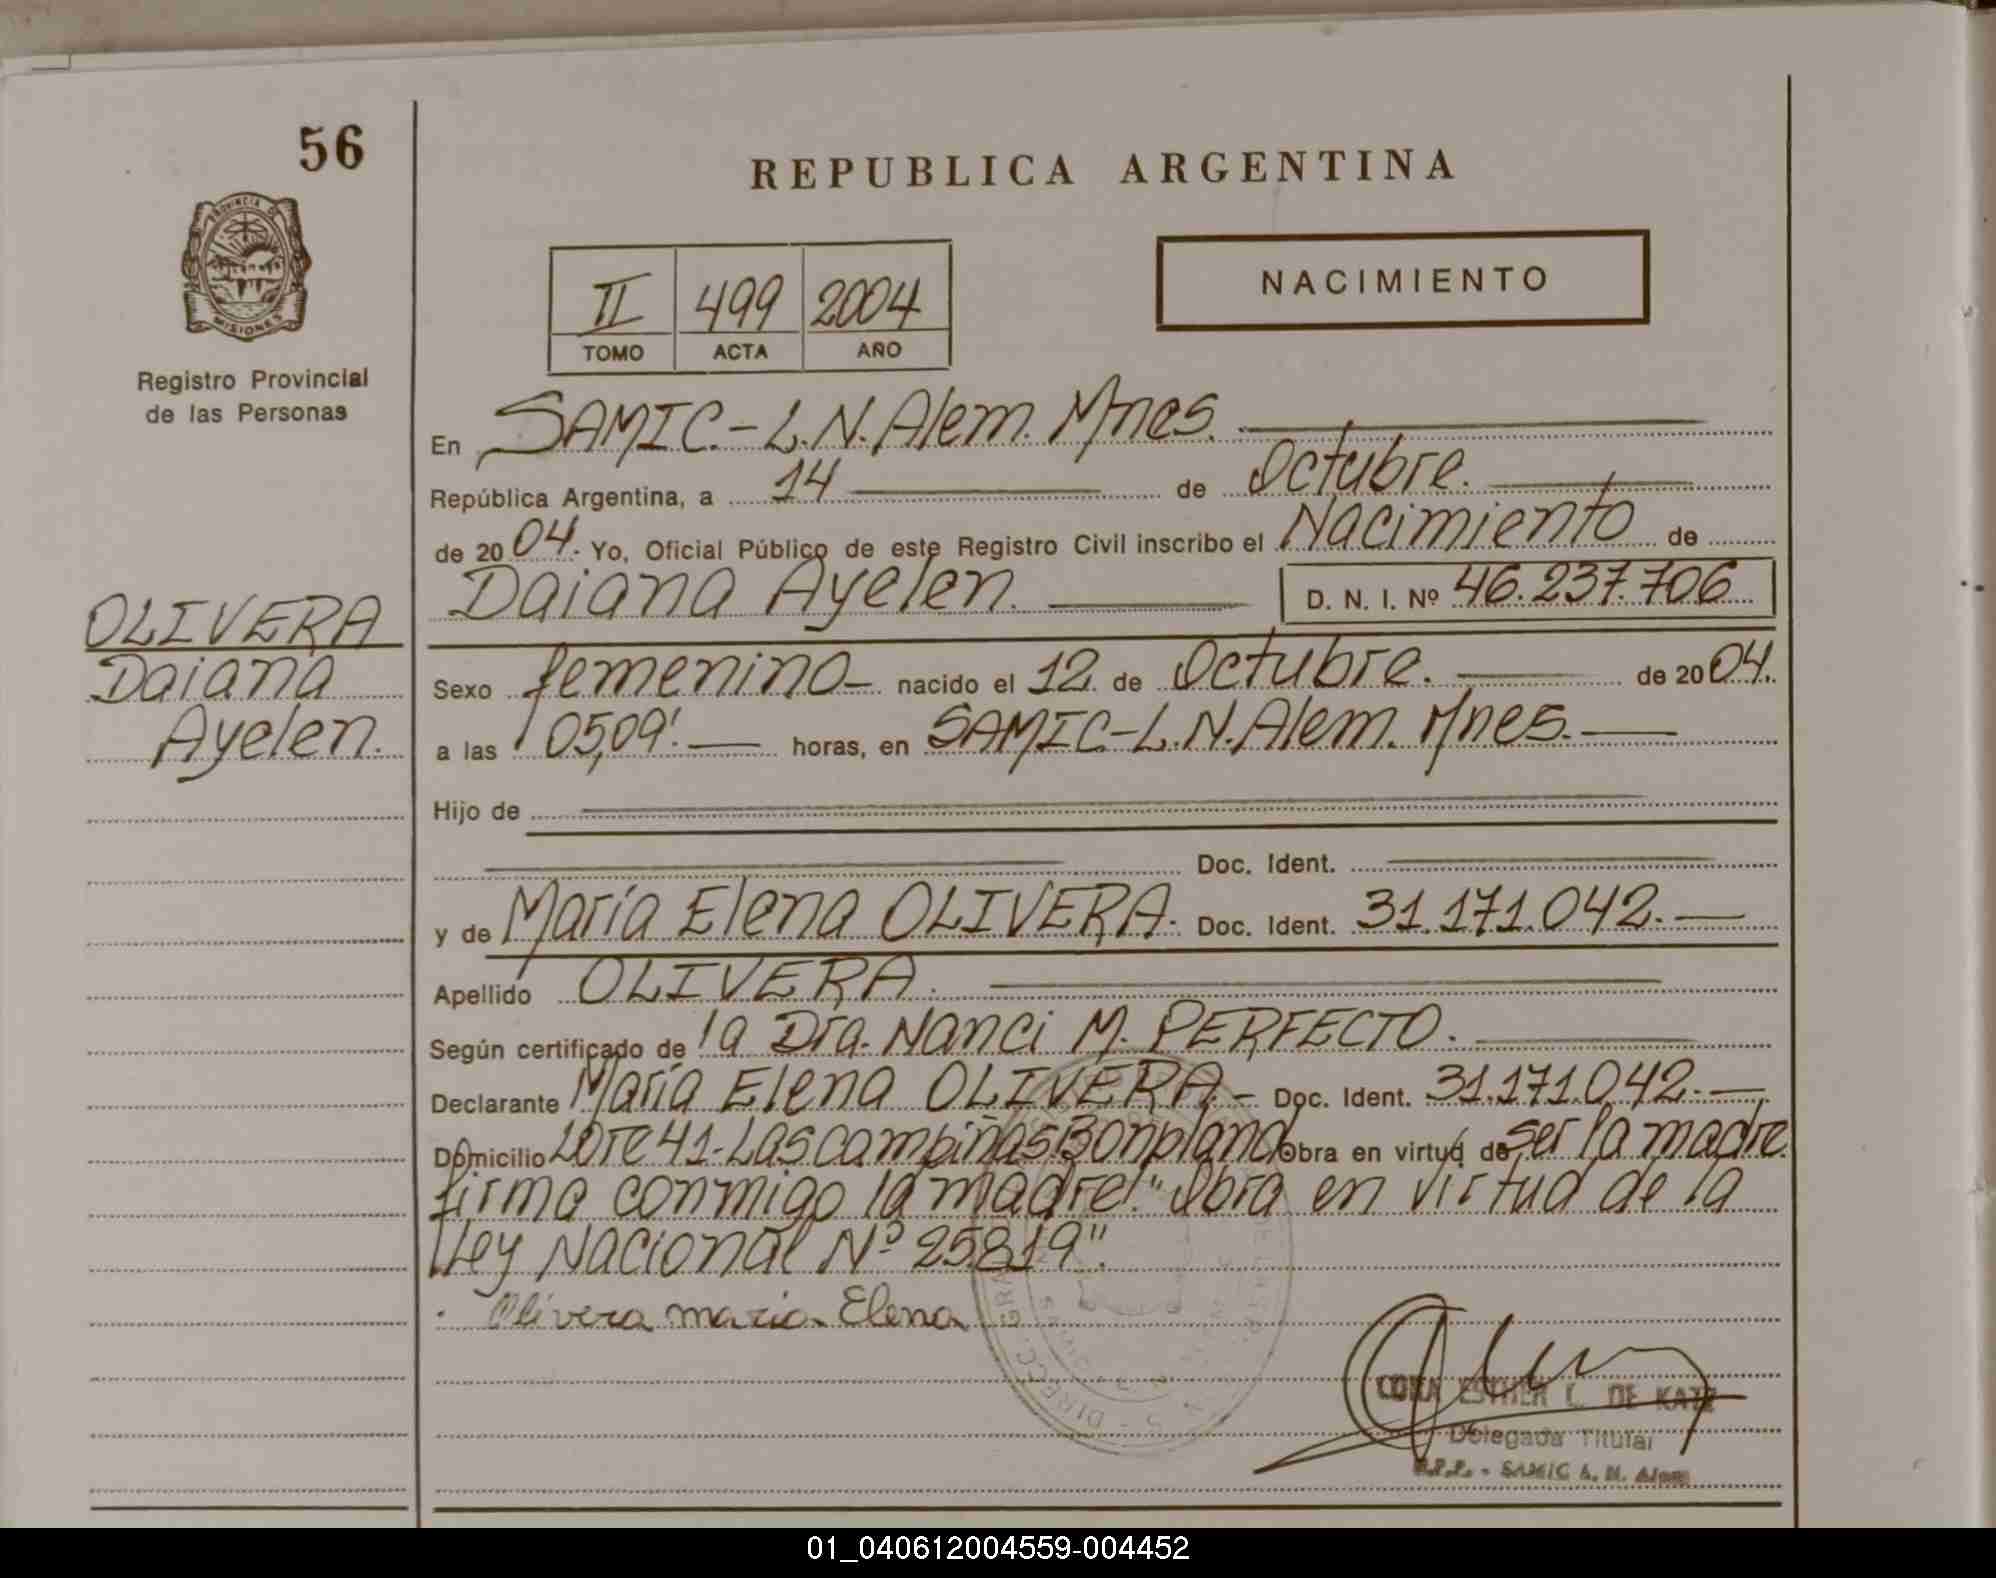 56
REPUBLICA ARGENTINA
PROVINCIA DE
MISIONES
Registro Provincial
de las Personas
NACIMIENTO
II 499 2004
TOMO ACTA AÑO
En SAMIC.-L.N.Alem. Mnes.
República Argentina, a 14 de Octubre.
de 20 04. Yo, Oficial Público de este Registro Civil inscribo el Nacimiento de
Daiana Ayelen. D. N. I. Nº 46.237.706
OLIVERA
Daiana
Ayelen.
Sexo femenino nacido el 12 de Octubre. de 20 04.
a las 05,09'. horas, en SAMIC-L.N.Alem. Mnes.
Hijo de
Doc. Ident.
y de María Elena OLIVERA. Doc. Ident. 31.171.042.
Apellido OLIVERA.
Según certificado de la Dra. Nanci M. PERFECTO.
Declarante María Elena OLIVERA.- Doc. Ident. 31.171.042.
Domicilio Lote 41-Las campiñas Bonpland Obra en virtud de ser la madre
firma conmigo la madre!"Obra en virtud de la
Ley Nacional Nº 25.819".
Olivera maria Elena
ESTHER L. DE KATZ
Delegada Titular
R.P.P. - SAMIC L. N. Alem
01_040612004559-004452